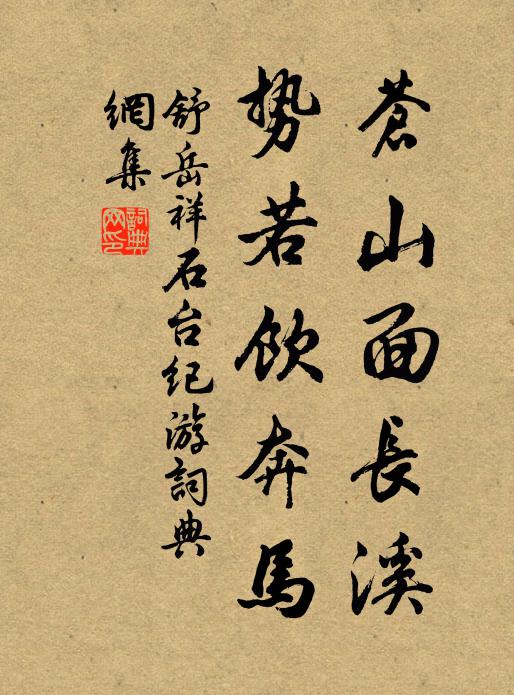 蒼山面長溪
势若飲奔馬
舒岳祥石台纪游詞典
網集
詞典网印